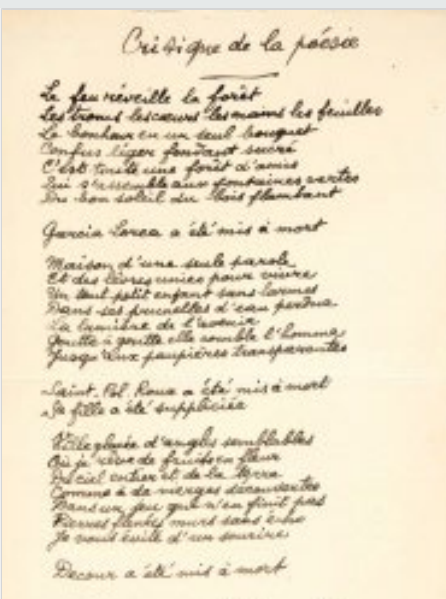 Critique de la poésie
Le feu réveille la forêt
Les troncs les cœurs les mains les feuilles
Le bonheur en un seul bouquet
Confus léger fondant sucré
C'est toute une forêt d'amis
Qui s'assemble aux fontaines vertes
Du bon soleil du bois flambant
Garcia Lorca a été mis à mort
Maison d'une seule parole
Et des lèvres unies pour vivre
Un tout petit enfant sans larmes
Dans ses prunelles d'eau perdue
La lumière de l'avenir
Goutte à goutte elle comble l'homme
Jusqu'aux paupières transparentes
Saint-Pol-Roux a été mis à mort
Sa fille a été suppliciée
Ville glacée d'angles semblables
Où je rêve de fruits en fleur
Du ciel entier et de la terre
Comme à de vierges découvertes
Dans un jeu qui n'en finit pas
Pierres fanées murs sans écho
Je vous évite d'un sourire
Decour a été mis à mort